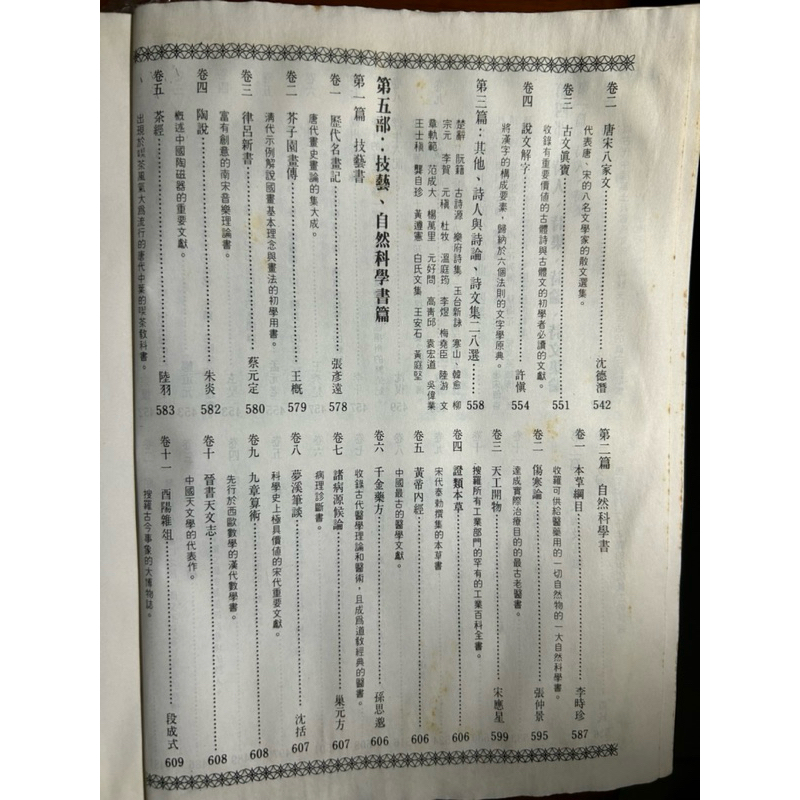 卷二　唐宋八家文……沈德潛 542
代表唐、宋的八名文學家的散文選集。
卷三　古文眞寶……551
收錄有重要價值的古體詩與古體文的初學者必讀的文獻。
卷四　說文解字……許愼 554
將漢字的構成要素，歸納於六個法則的文字學原典。
第三篇：其他、詩人與詩論、詩文集二八選……558
楚辭　阮籍　古詩源　樂府詩集　玉台新詠　寒山、韓愈　柳
宗元　李賀　元稹　杜牧　溫庭筠　李煜　梅堯臣　陸游　文
章軌範　范成大　楊萬里　元好問　高靑邱　袁宏道　吳偉業
王士稹　龔自珍　黃遵憲　白氏文集　王安石　黃庭堅
第五部：技藝、自然科學書篇
第一篇　技藝書
卷一　歷代名畫記……張彥遠 578
唐代畫史畫論的集大成。
卷二　芥子園畫傳……王概 579
淸代示例解說國畫基本理念與畫法的初學用書。
卷三　律呂新書……蔡元定 580
富有創意的南宋音樂理論書。
卷四　陶說……朱炎 582
概述中國陶磁器的重要文獻。
卷五　茶經……陸羽 583
出現於喫茶風氣大爲流行的唐代中葉的喫茶敎科書。
第二篇　自然科學書
卷一　本草綱目……李時珍 587
收羅可供給醫藥用的一切自然物的一大自然科學書。
卷二　傷寒論……張仲景 595
達成實際治療目的的最古老醫書。
卷三　天工開物……宋應星 599
搜羅所有工業部門的罕有的工業百科全書。
卷四　證類本草……606
宋代奉勅撰集的本草書
卷五　黃帝內經……606
中國最古的醫學文獻。
卷六　千金藥方……孫思邈 606
收錄古代醫學理論和醫術，且成爲道敎經典的醫書。
卷七　諸病源候論……巢元方 607
病理診斷書。
卷八　夢溪筆談……沈括 607
科學史上極具價値的宋代重要文獻。
卷九　九章算術……608
先行於西歐數學的漢代數學書。
卷十　晉書天文志……608
中國天文學的代表作。
卷十一　酉陽雜俎……段成式 609
搜羅古今事象的大博物誌。